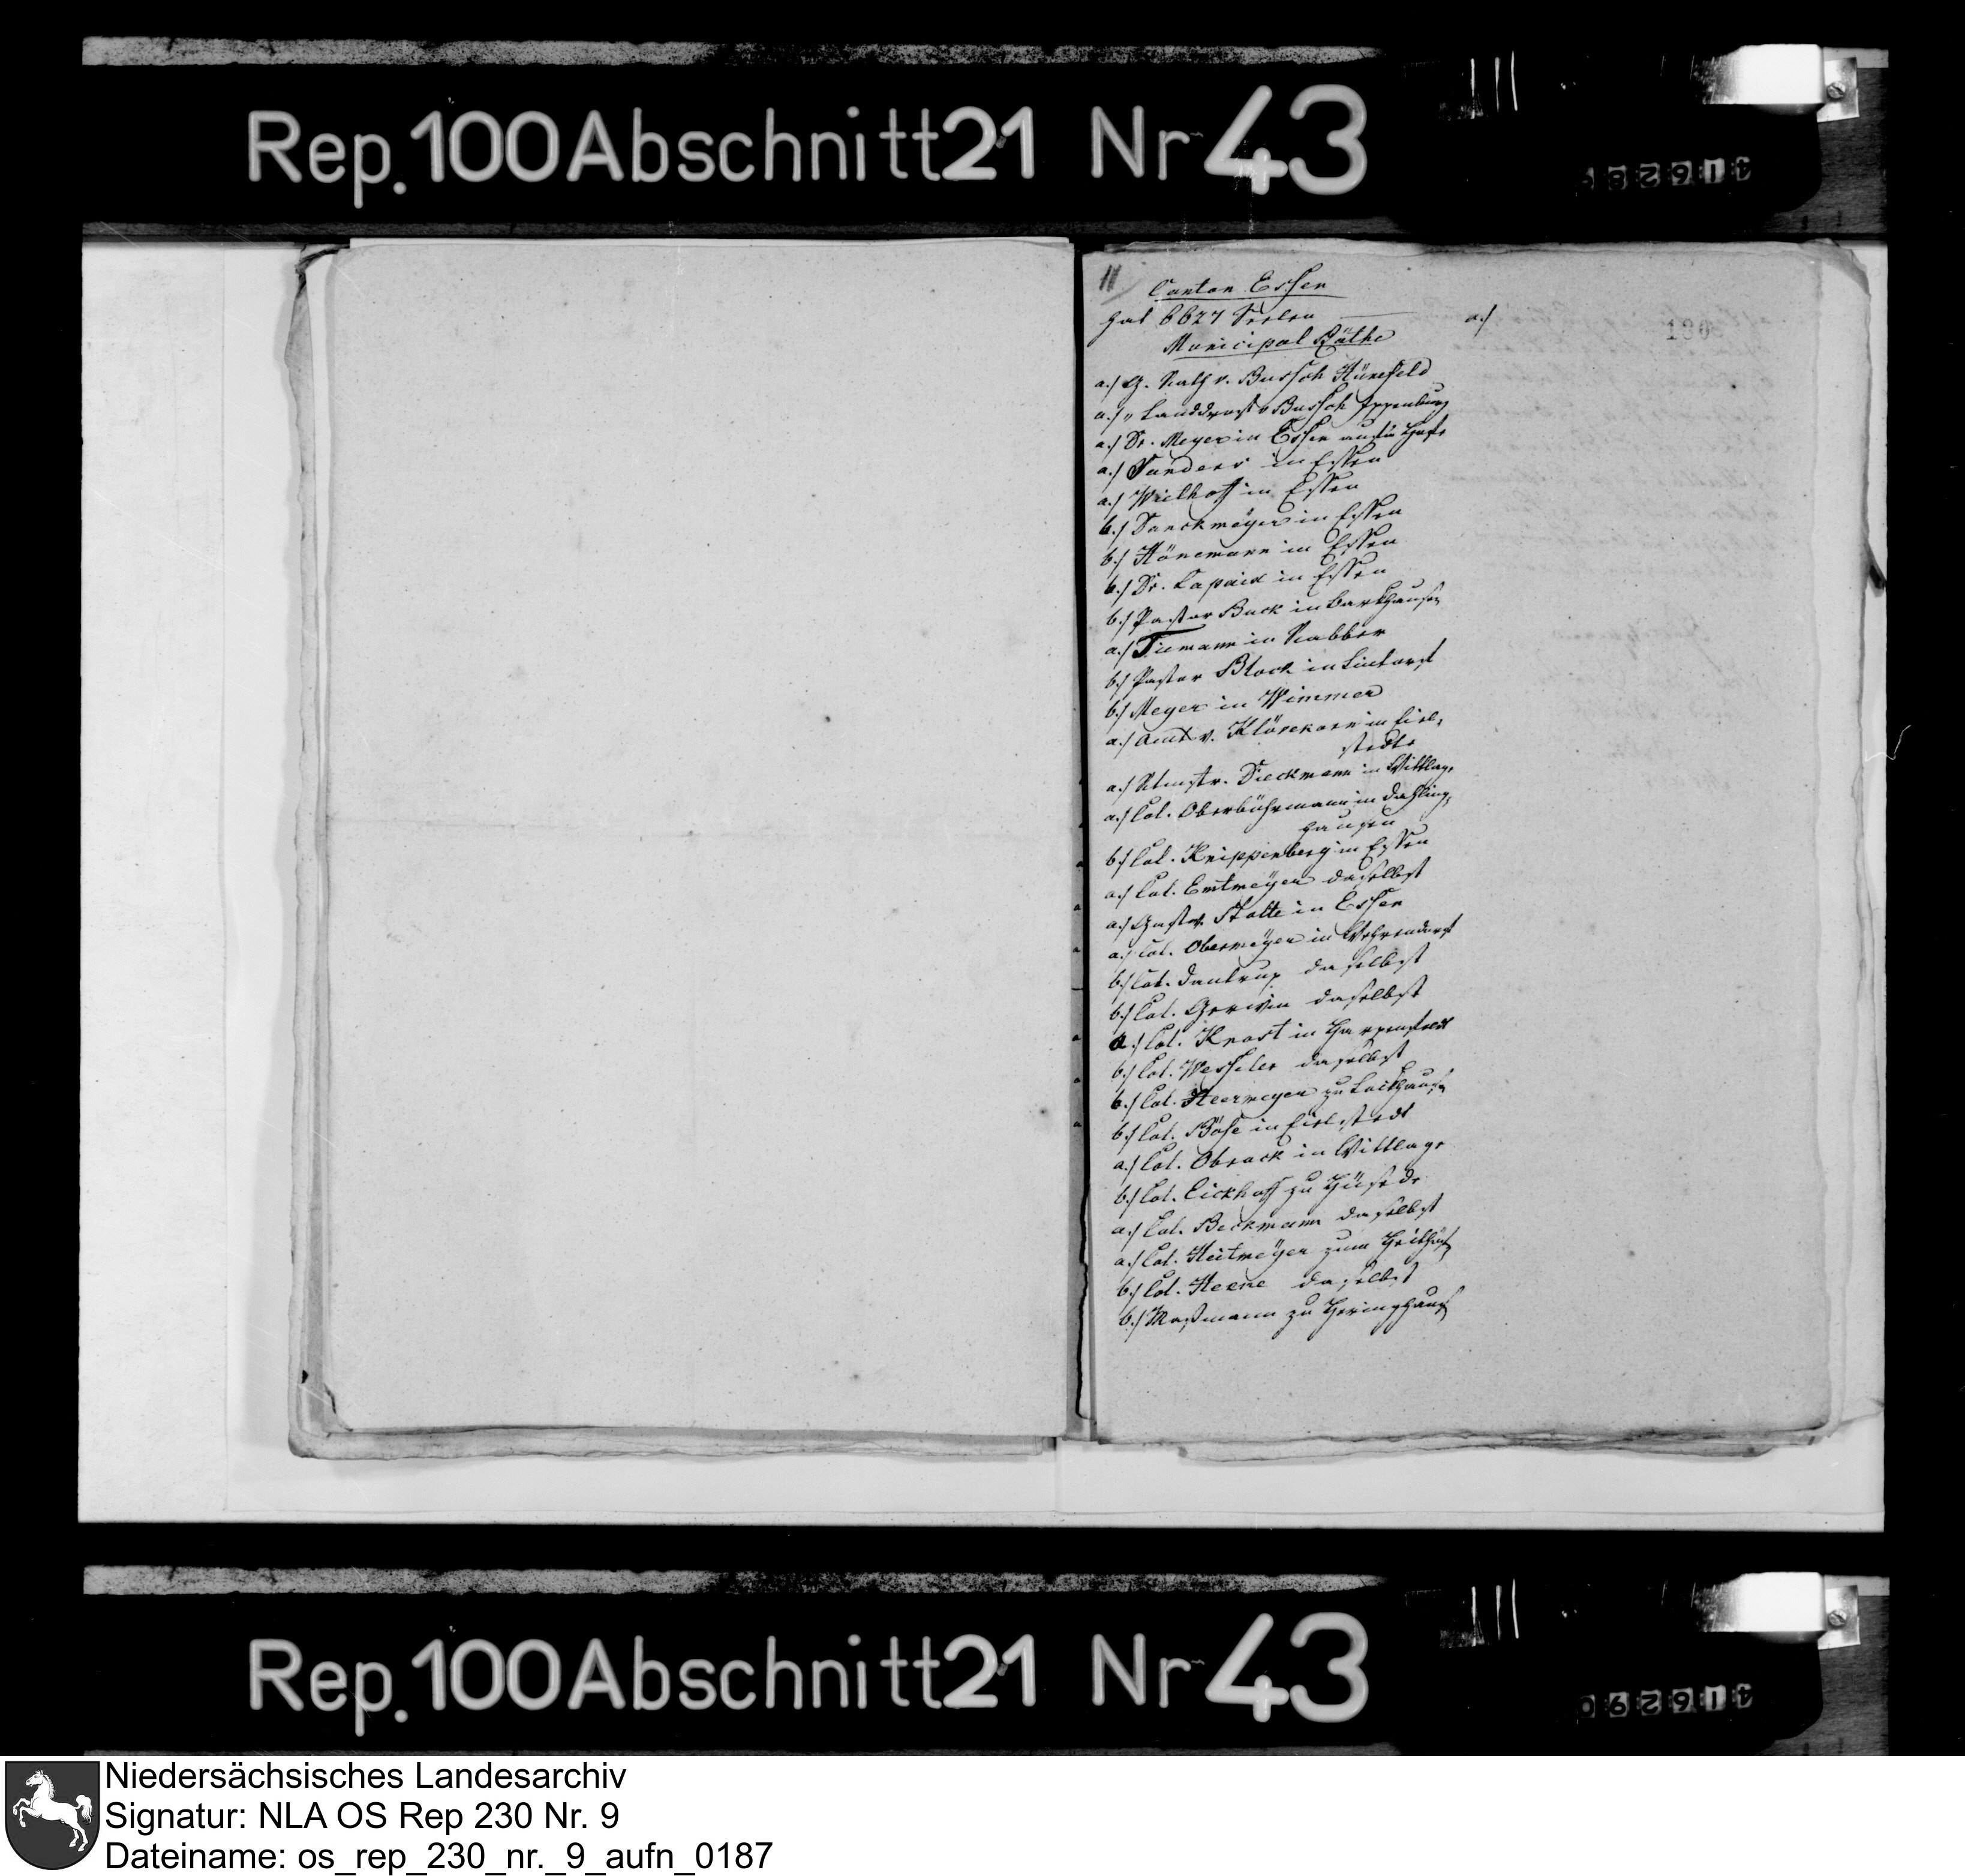 Rep. 100 Abschnitt 21 Nr 43
11
Canton Essen
hat 6627 Seelen
a./
180
Municipal Räthe
a./ G. Rath v. Bussch Hünefeld
a./ " Landdrost v Bussch Ippenburg
a./ Dr. Meyer in Essen
a./ Sanders in Essen
a./ Wielhoff in Essen
b./ Danckmeÿer in Essen
b./ Hönemann in Essen
b./ Dr. in Essen
b./ Pastor Buck in Barkhausen
a./ Tiemann in Rabber
b./ Pastor Block in Lintorf
b./ Meyer in Wimmer
a./ Amtv. Klönekorn in Eiel=
stedt
a./ Rtmstr. Dieckmann in Wittlage
a./ Col. Oberbührmann in Dahling=
hausen
b./ Col. Knippenberg in Essen
a./ Col. Emtmeÿer daselbst
a./ Gastw. Stolte in Essen
a./ Col. Obermeÿer in Wehrendorf
b./ Col. Dantrup daselbst
b./ Col. daselbst
a./ Col. Knost in Harpenfeld
b./ Col. Wesseler daselbst
b./ Col. Heermeyer zu Lockhausen
b./ Col. Böse in Eielstedt
a./ Col. Obrock in Wittlage
b./ Col. Eickhoff zu Hüsede
a./ Col. Beckmann daselbst
a./ Col. Heitmeÿer zum
b./ Col. Heene daselbst
b./ Masmann zu Heringhaus
Rep. 100 Abschnitt 21 Nr 43
416290
Niedersächsisches Landesarchiv
Signatur: NLA OS Rep 230 Nr. 9
Dateiname: os_rep_230_nr._9_aufn_0187